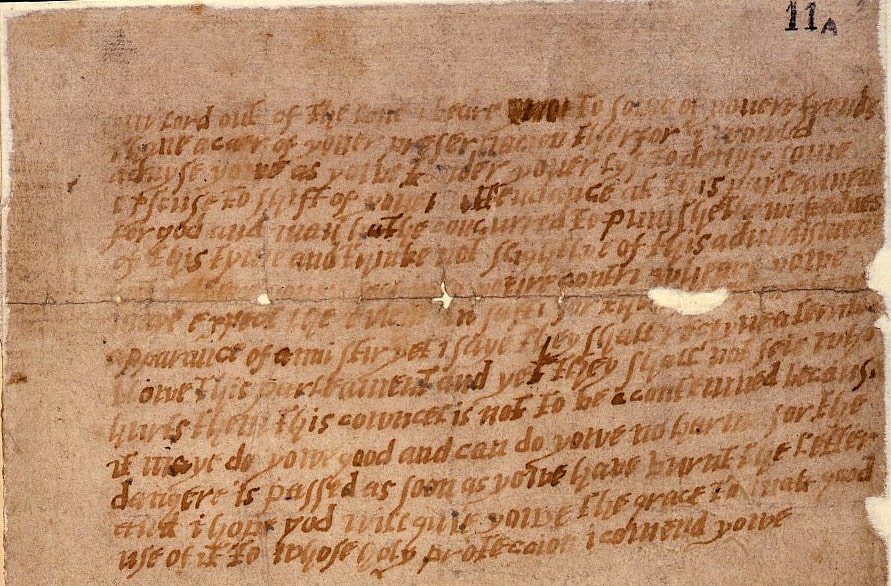 11A
my lord out of the love i beare to some of youere frends
i have a caer of youer preseruacion therfor i would
aduyse yowe as yowe tender youer lyf to deuyse some
excuse to shift of youer attendance at this parleament
for god and man hathe concurred to punishe the wickednes
of this tyme and thinke not slightlye of this aduertisment
youre contri wheare yowe
maye expect the event in safti for
apparance of anni stir yet i saye they shall receyue a terrible
blowe this parleament and yet they shall not seie who
hurts them this cowncel is not to be acontemned because
it maye do yowe good and can do yowe no harme for the
dangere is passed as soon as yowe have burnt the letter
and i hope god will giue yowe the grace to mak good
use of it to whose holy proteccion i comend yowe